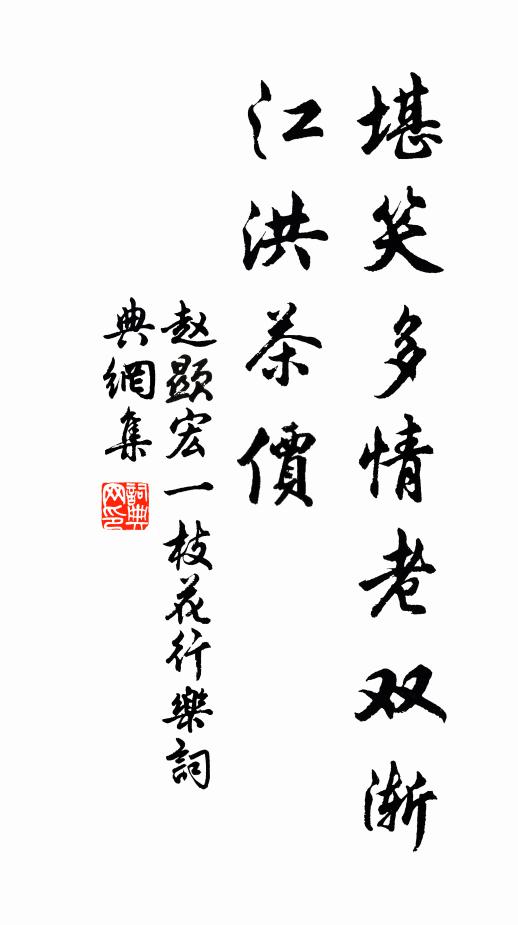 堪笑多情老双渐
江洪茶價
赵顯宏一枝花行樂詞
典網集
詞典
网印